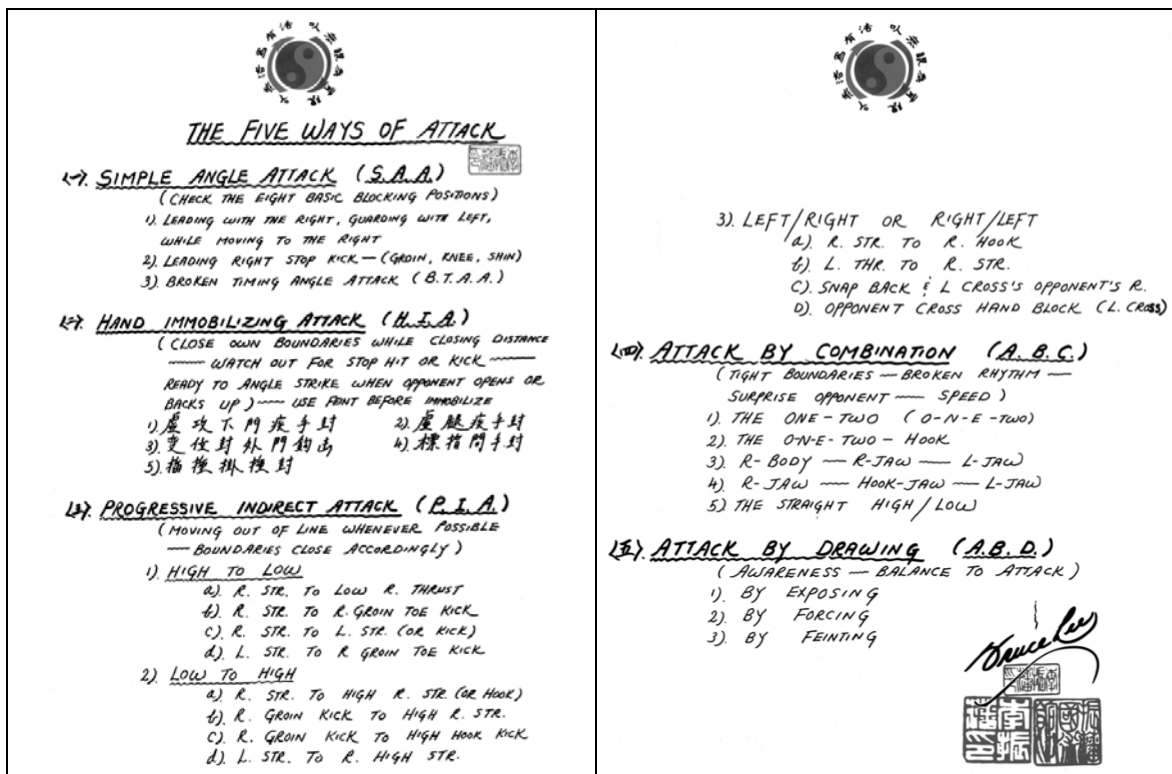 以無法為有法 以無限為有限
THE FIVE WAYS OF ATTACK
(一). SIMPLE ANGLE ATTACK (S.A.A.)
(CHECK THE EIGHT BASIC BLOCKING POSITIONS)
1). LEADING WITH THE RIGHT, GUARDING WITH LEFT,
WHILE MOVING TO THE RIGHT
2). LEADING RIGHT STOP KICK — (GROIN, KNEE, SHIN)
3). BROKEN TIMING ANGLE ATTACK (B.T.A.A.)
(二). HAND IMMOBILIZING ATTACK (H.I.A.)
(CLOSE OWN BOUNDARIES WHILE CLOSING DISTANCE
— WATCH OUT FOR STOP HIT OR KICK —
READY TO ANGLE STRIKE WHEN OPPONENT OPENS OR
BACKS UP) — USE FONT BEFORE IMMOBILIZE
1). 虛攻下門疾手封 2). 虛腿疾手封
3). 封外門鈎 4). 標指問手封
5). 插捶掛捶封
(三). PROGRESSIVE INDIRECT ATTACK (P.I.A.)
(MOVING OUT OF LINE WHENEVER POSSIBLE
— BOUNDARIES CLOSE ACCORDINGLY)
1). HIGH TO LOW
a). R. STR. TO LOW R. THRUST
b). R. STR. TO R. GROIN TOE KICK
c). R. STR. TO L. STR. (OR KICK)
d). L. STR. TO R GROIN TOE KICK
2). LOW TO HIGH
a). R. STR. TO HIGH R. STR. (OR HOOK)
b). R. GROIN KICK TO HIGH R. STR.
c). R. GROIN KICK TO HIGH HOOK KICK
d). L. STR. TO R. HIGH STR.
以無法為有法 以無限為有限
3). LEFT/RIGHT OR RIGHT/LEFT
a). R. STR. TO R. HOOK
b). L. THR. TO R. STR.
C). SNAP BACK & L CROSS'S OPPONENT'S R.
D). OPPONENT CROSS HAND BLOCK (L. CROSS)
(四). ATTACK BY COMBINATION (A.B.C.)
(TIGHT BOUNDARIES — BROKEN RHYTHM —
SURPRISE OPPONENT — SPEED)
1). THE ONE-TWO (O-N-E-TWO)
2). THE O-N-E-TWO-HOOK
3). R-BODY — R-JAW — L-JAW
4). R-JAW — HOOK-JAW — L-JAW
5). THE STRAIGHT HIGH/LOW
(五). ATTACK BY DRAWING (A.B.D.)
(AWARENESS — BALANCE TO ATTACK)
1). BY EXPOSING
2). BY FORCING
3). BY FEINTING
Bruce Lee